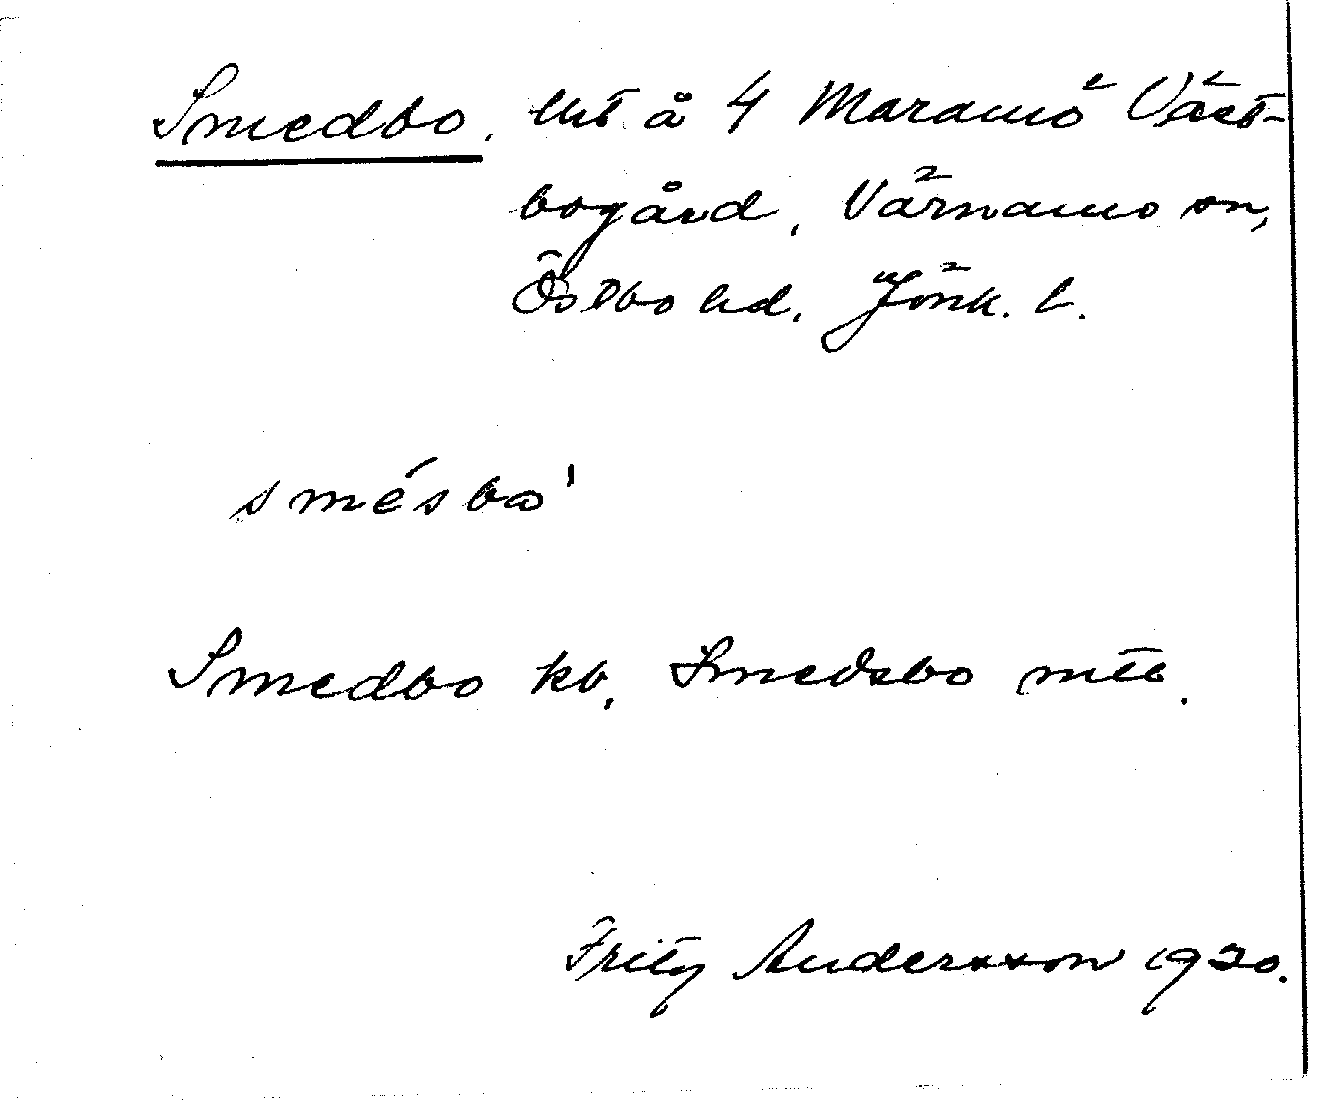 Smedbo. lht å 4 Maramö Väst-
bogård, Värnamo sn,
Östbo hd. Jönk. l.
smésbo'
Smedbo kb. Smedsbo mtb.
Fritz Andersson 1920.